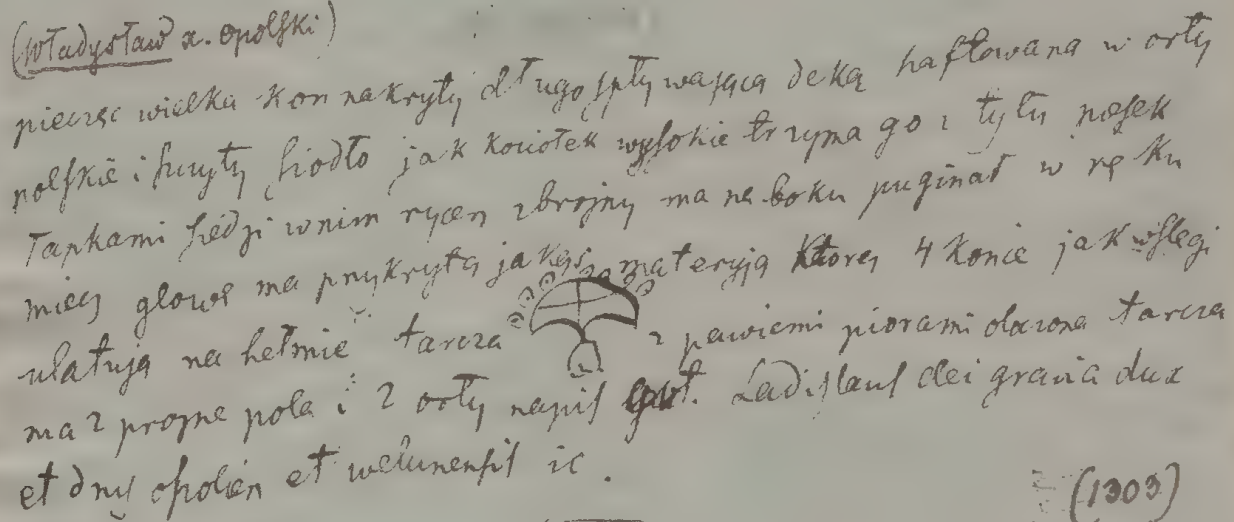 (Władysław x. opolſki)
pieczęc wielka kon nakryty długo ſpływającą deką haftowana w orły
polſkie i ſzczyty ſiodło jak kociołek wyſokie trzyma go z tyłu pieſek
łapkami ſiedzi w nim rycerz zbrojny ma na boku puginał w ręku
miecz głowę ma przykrytą jakąś materyją ktorej 4 konce jak wſtęgi
ulatują na hełmie tarcza z pawiemi piorami otoczona tarcza
ma 2 prozne pola i 2 orły napiſ Ladiſlauſ dei gracia dux
et dnſ opolien et welunenſiſ ic.
(1303)